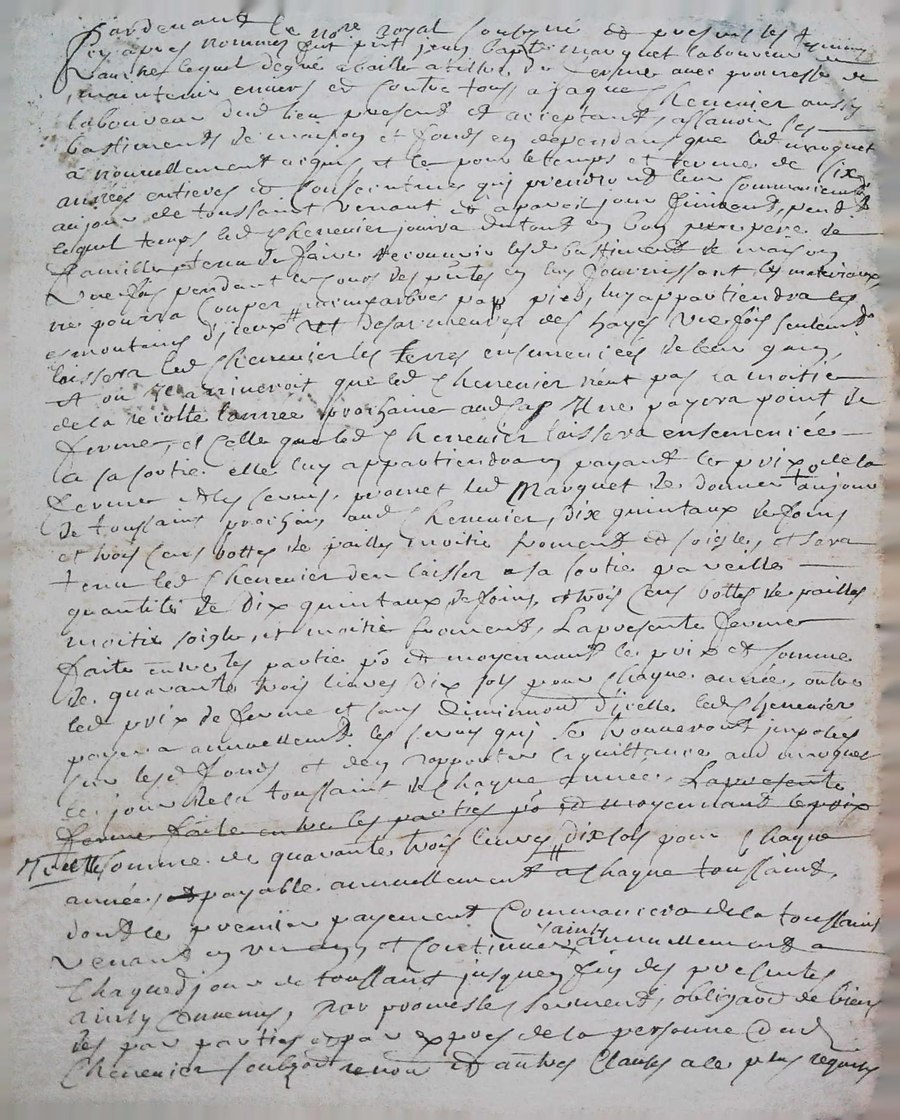 Pardevant le no.re royal soubsigné et presens les temoins
cy apres nommes fut pnt jean bapte marquet laboureur
lequel de gré a baille a tiltre de ferme avec promesse de
maintenir envers et contre tous, a jaque Chenevier aussy
laboureur dud lieu present et acceptant, assavoir les
bastiments de maison et fonds en dependans que led marquet
a nouvellement acquis, et ce pour le temps et terme de six
années entieres et consecutives qui prendront leur commencement
au jour de toussaint venant et a pareil jour finiront, pendt
lequel temps led Chenevier jouira du tout en bon pere de
famille, tenu de faire recouvrir lesd bastiments de maison
une fois pendant le cours des pntes en luy fournissant les materiaux,
ne pourra couper aucuns arbres par pied, luy appartiendra les
emontures d'iceux et des armeures des hayes une fois seulemt
laissera led Chenevier les terres ensemencées de leur grain,
et ou il arriveroit que led Chenevier n'eut pas la moitie
de la recolte l'année prochaine aud cas il ne payera point de
ferme, et celle que led Chenevier laissera ensemencée
a sa sortie elle luy appartiendra en payant le prix de la
ferme et les servis, promet led Marquet de donner au jour
de toussaint prochain aud Chenevier, dix quintaux de foins
et trois cens bottes de pailles moitie froment et soigle, et sera
tenu led Chenevier d'en laisser a sa sortie pareilles
quantité de dix quintaux de foins, et trois cens bottes de pailles
moitie soigle, et moitie froment, La presente ferme
faite entre les partie po et moyennant le prix et somme
de quarante trois livres dix sols pour chaque année, outre
led prix de ferme et sans diminuon d'icelle led Chenevier
payera annuellement les servis qui se trouveront imposés
sur lesd fonds et d'en rapporter quittance aud marquet
le jour de la toussaint de chaque année. La presente
ferme faite entre les parties po et moyennant le prix
et somme de quarante trois livres dix sols pour chaque
années et payable annuellement a chaque toussaint,
dont le premier payement commancera de la toussaint
venant en un an, et continuer ainsy annuellement a
chaque jour de toussaint jusqu'en fin des presentes
ainsy convenus, par promesses serment, obligaon de biens
des par parties et par expres de la personne dud
Chenevier soubzon renon et autres clauses a ce plus requises